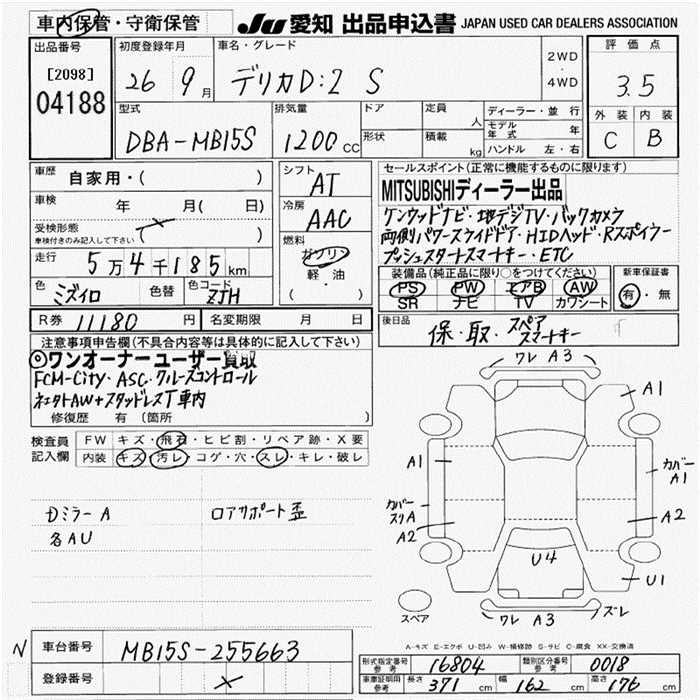 車内保管・守衛保管
JU 愛知 出品申込書 JAPAN USED CAR DEALERS ASSOCIATION
出品番号
[2098]
04188
初度登録年月
26 9月
車名・グレード
デリカD:2 S
2WD
・
4WD
評価点
3.5
外装 内装
C B
型式
DBA-MB15S
排気量
1200CC
ドア
形状
定員
人
積載
kg
ディーラー・並行
モデル年式 年
ハンドル 左・右
車歴
自家用・( )
車検 年 月( 日)
受検形態
車検付きのみ記入して下さい ( )
走行
5万4千185km
色
ミズイロ
色替
色コード
ZJH
シフト
AT
冷房
AAC
燃料
ガソリン
軽・油
( )
セールスポイント(正常に機能するものに限ります)
MITSUBISHIディーラー出品
ケンウッドナビ・地デジTV・バックカメラ
両側パワースライドドア・HIDヘッド・Rスポイラー
プッシュスタートスマートキー・ETC
装備品(純正品に限り○をつけてください)
PS PW エアB AW
SR ナビ TV カワシート
新車保証書
有・無
R券 11180円
名変期限 月 日
後日品
保・取・スペアスマートキー
注意事項申告欄(不具合内容等は具体的に記入して下さい)
◎ワンオーナーユーザー買取
FCM-City・ASC・クルーズコントロール
ネクトAW+スタッドレスT車内
修復歴 有(箇所 )
検査員記入欄
FW キズ・飛石・ヒビ割・リペア跡・X要
内装 キズ・汚レ・コゲ・穴・スレ・キレ・破レ
Dミラー A
各AU
ロアサポート歪
ワレ A3
A1
A1
カバー
A1
カバー
スリA
A2
A2
U4
U1
ワレ A3
ズレ
スペア
A-キズ E-エクボ U-凹み W-補修跡 S-サビ C-腐食 XX-交換済
N
車台番号
MB15S-255663
登録番号
型式指定番号
参考
16804
類別区分番号
参考
0018
車庫証明用
参考
長さ 371cm 幅 162cm 高さ 176cm